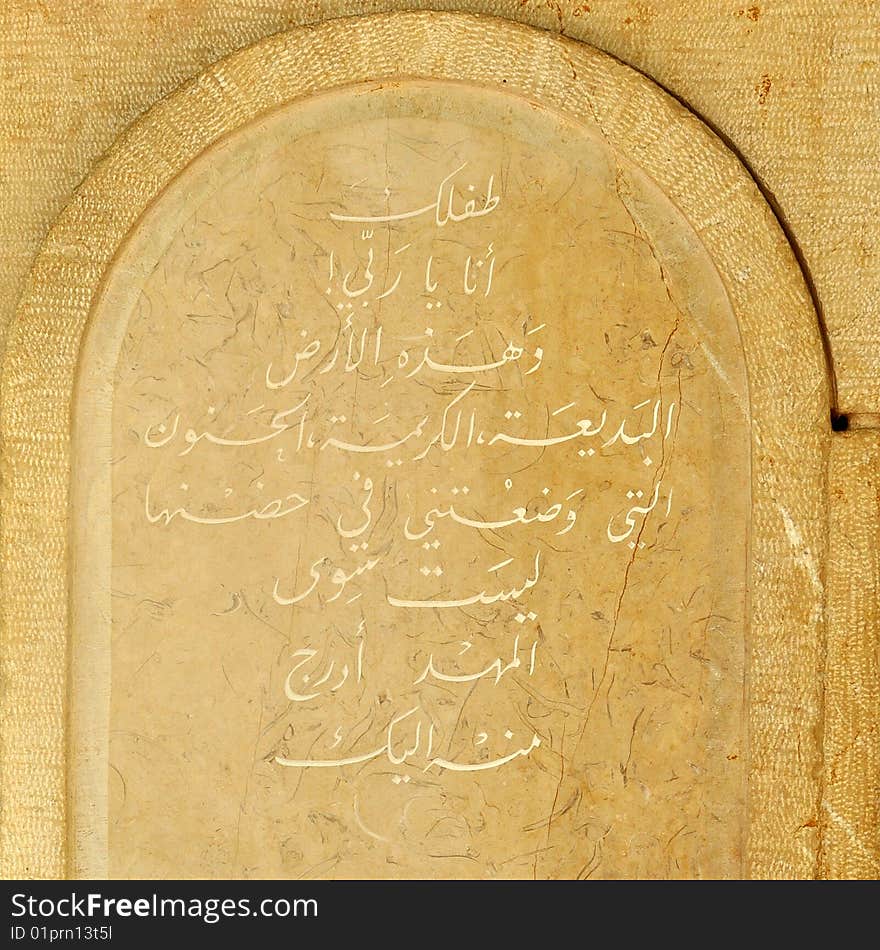 طفلكَ
أنا يا رَبّي!
وَهَذهِ الأرض
البَديعَة،الكريمَة،الحَنون
التي وَضعْتني في حضْنها
ليسَت سِوى
المهْد أدرج
منهْ اليك
StockFreeImages.com
ID 01prn13t5l